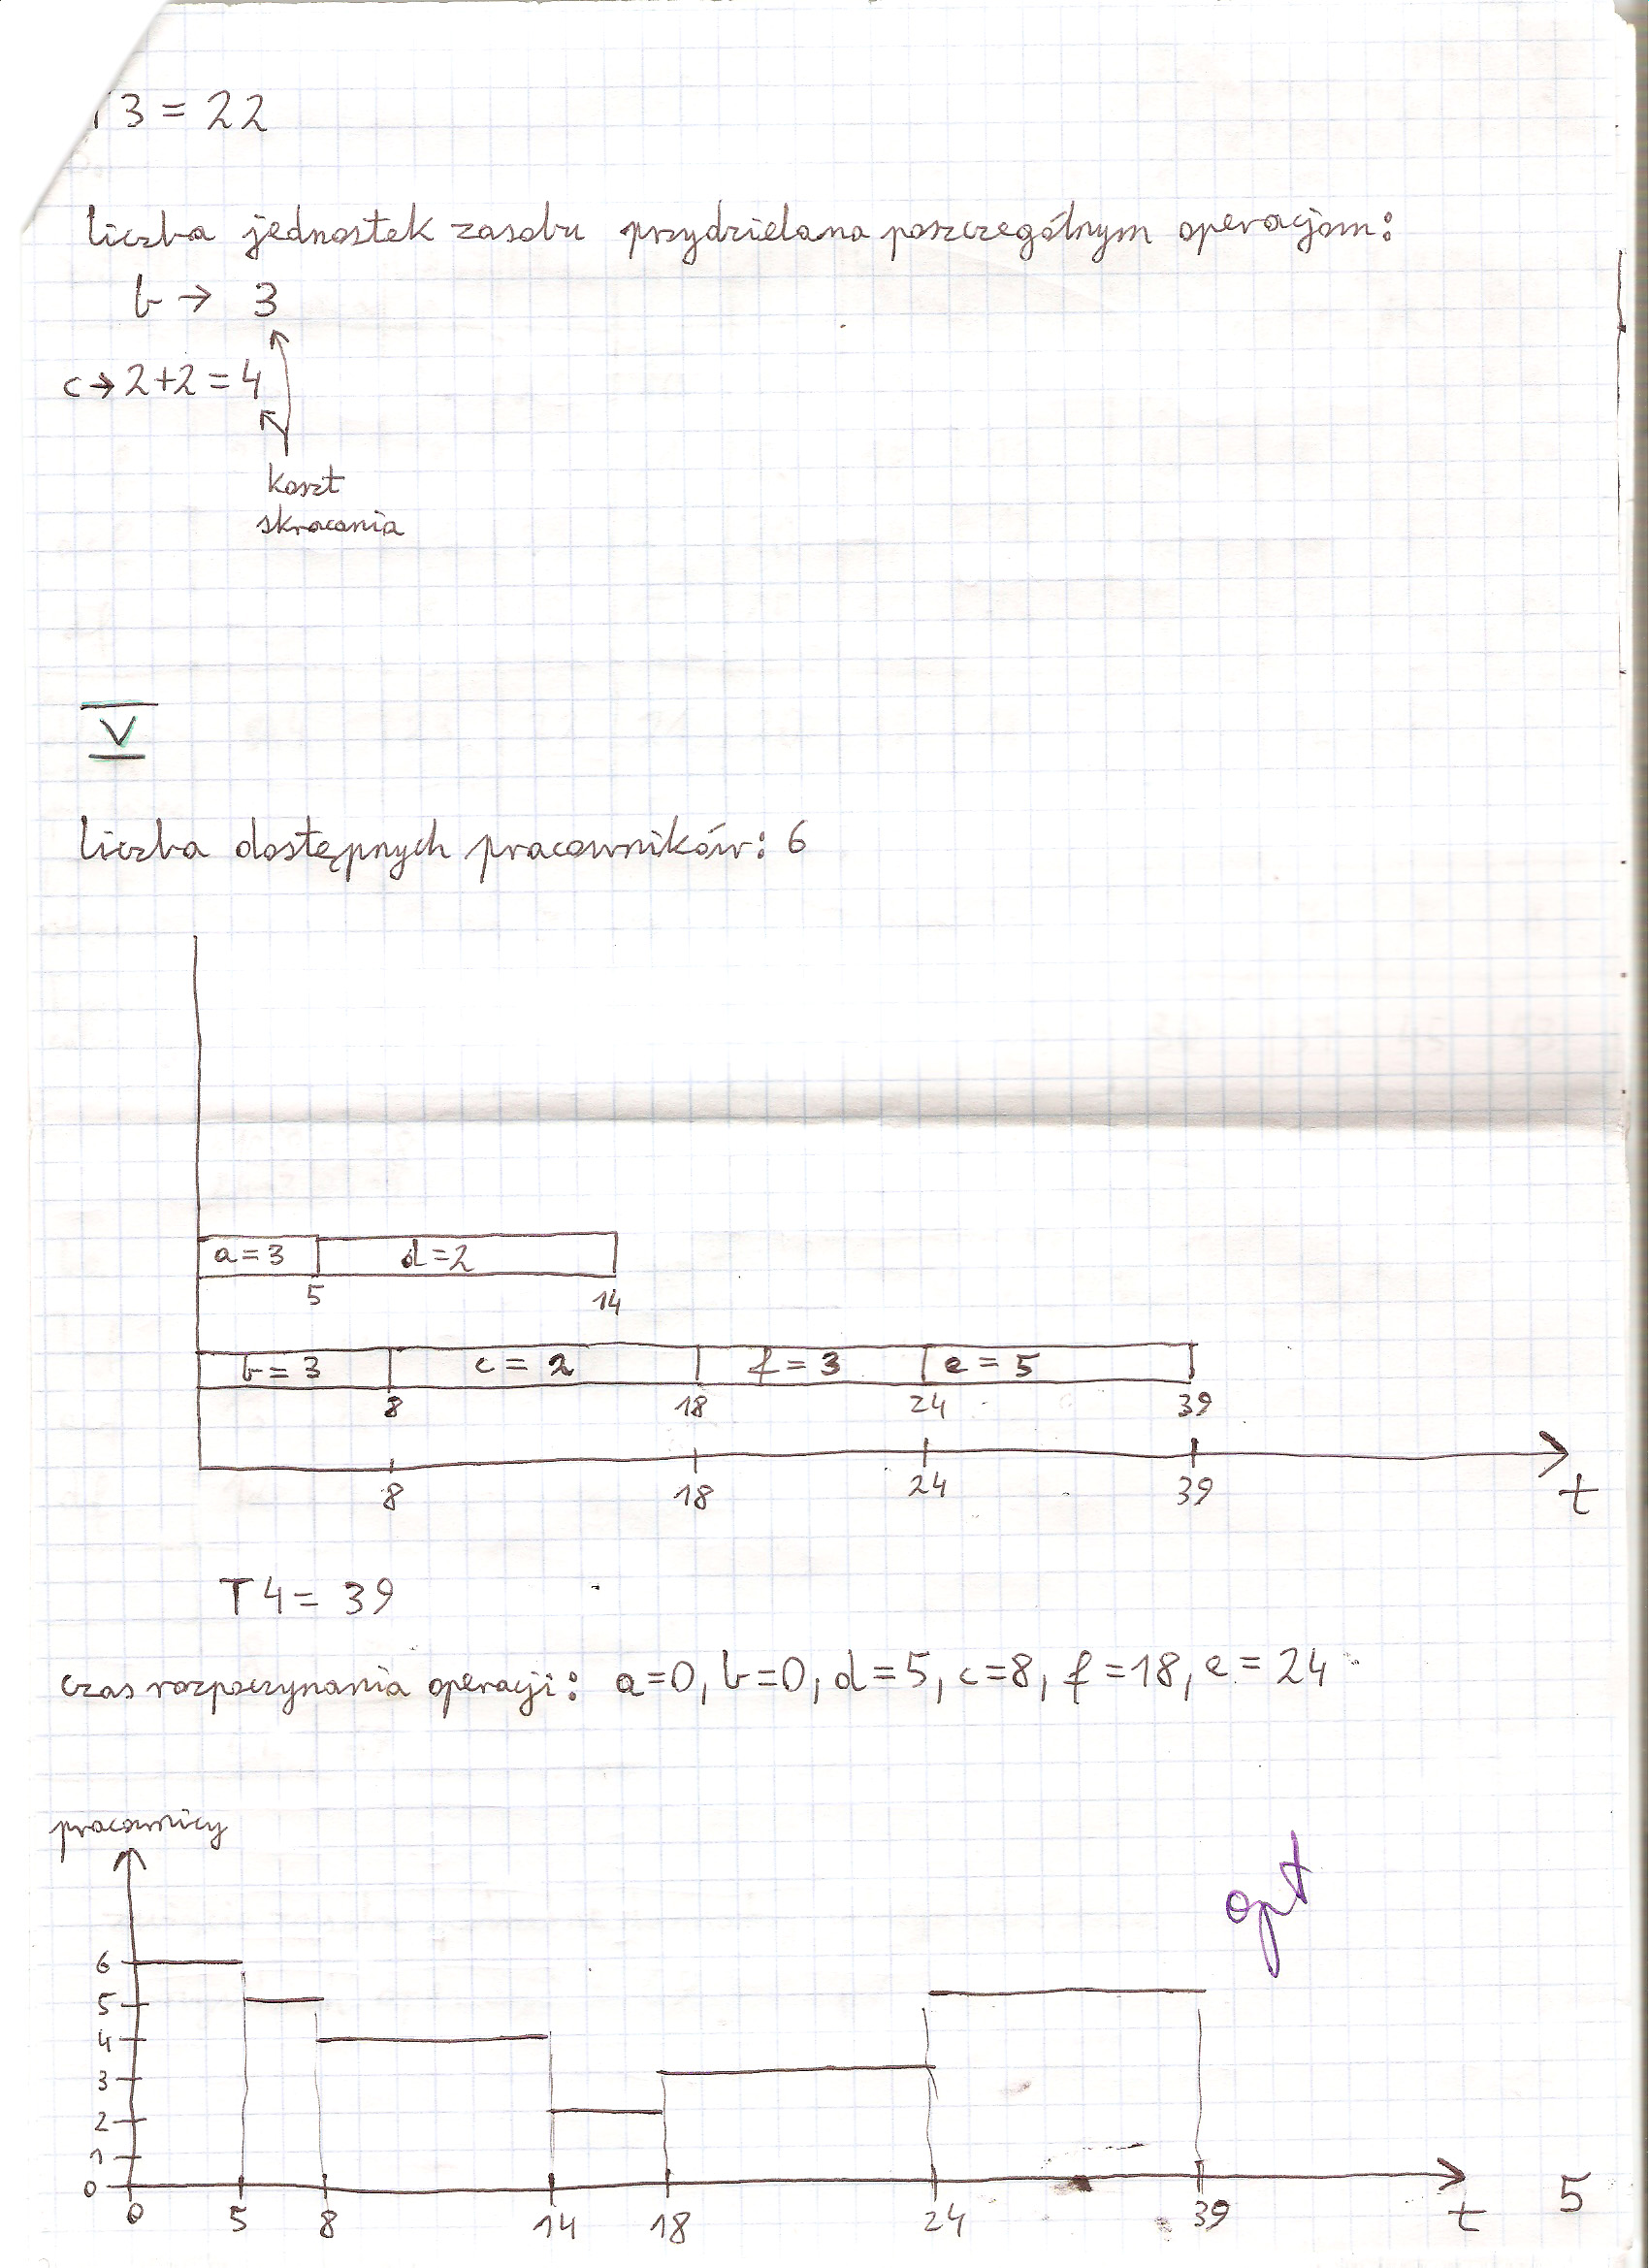 T3 = 22
liczba jednostek zasobu przydzielana poszczególnym operacjom:
b → 3
c → 2+2 = 4
koszt
skracania
V
liczba dostępnych pracowników: 6
a = 3 d = 2
5 14
b = 3 c = 2 f = 3 e = 5
8 18 24 39
8 18 24 39
t
T4 = 39
czas rozpoczynania operacji: a=0, b=0, d=5, c=8, f=18, e=24
pracownicy
opt
6
5
4
3
2
1
0
0 5 8 14 18 24 39 t
5